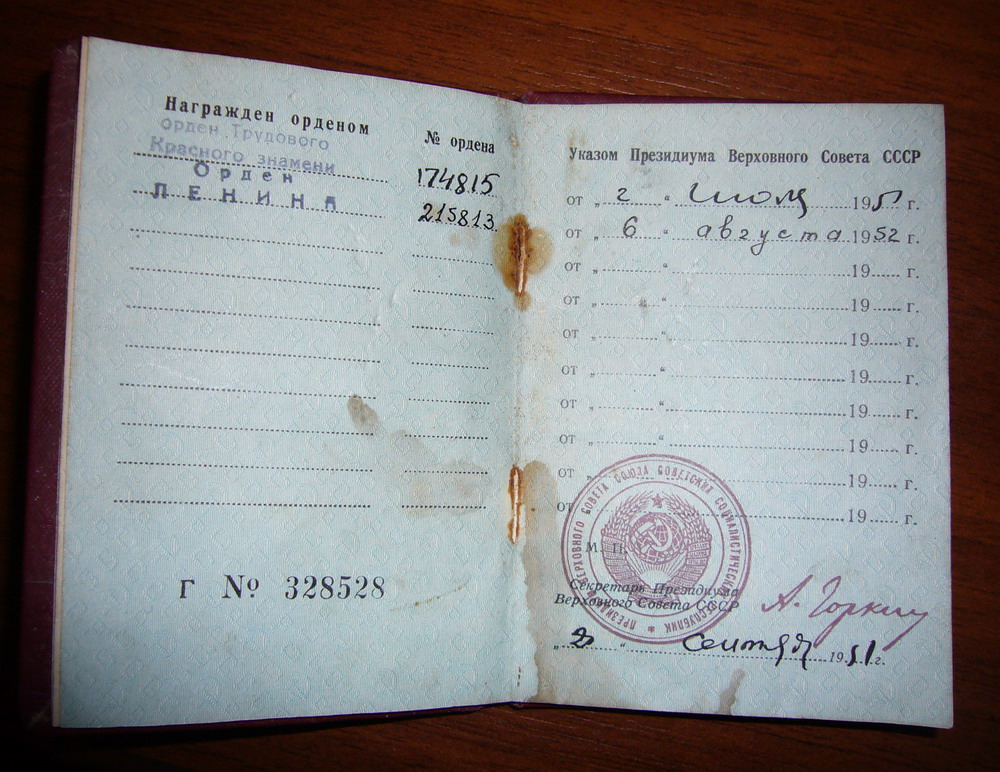 Награжден орденом
№ ордена
Орден Трудового
Красного знамени
174815
Орден
ЛЕНИНА
215813.
Г № 328528
Указом Президиума Верховного Совета СССР
от „ 2 “ июля 1951 г.
от „ 6 “ августа 1952 г.
от „ “ 19 г.
от „ “ 19 г.
от „ “ 19 г.
от „ “ 19 г.
от „ “ 19 г.
от „ “ 19 г.
от „ 19 г.
от 19 г.
М. П.
ПРЕЗИДИУМ ВЕРХОВНОГО СОВЕТА СОЮЗА СОВЕТСКИХ СОЦИАЛИСТИЧЕСКИХ РЕСПУБЛИК
Секретарь Президиума
Верховного Совета СССР
А. Горкин
„ “ 1951 г.